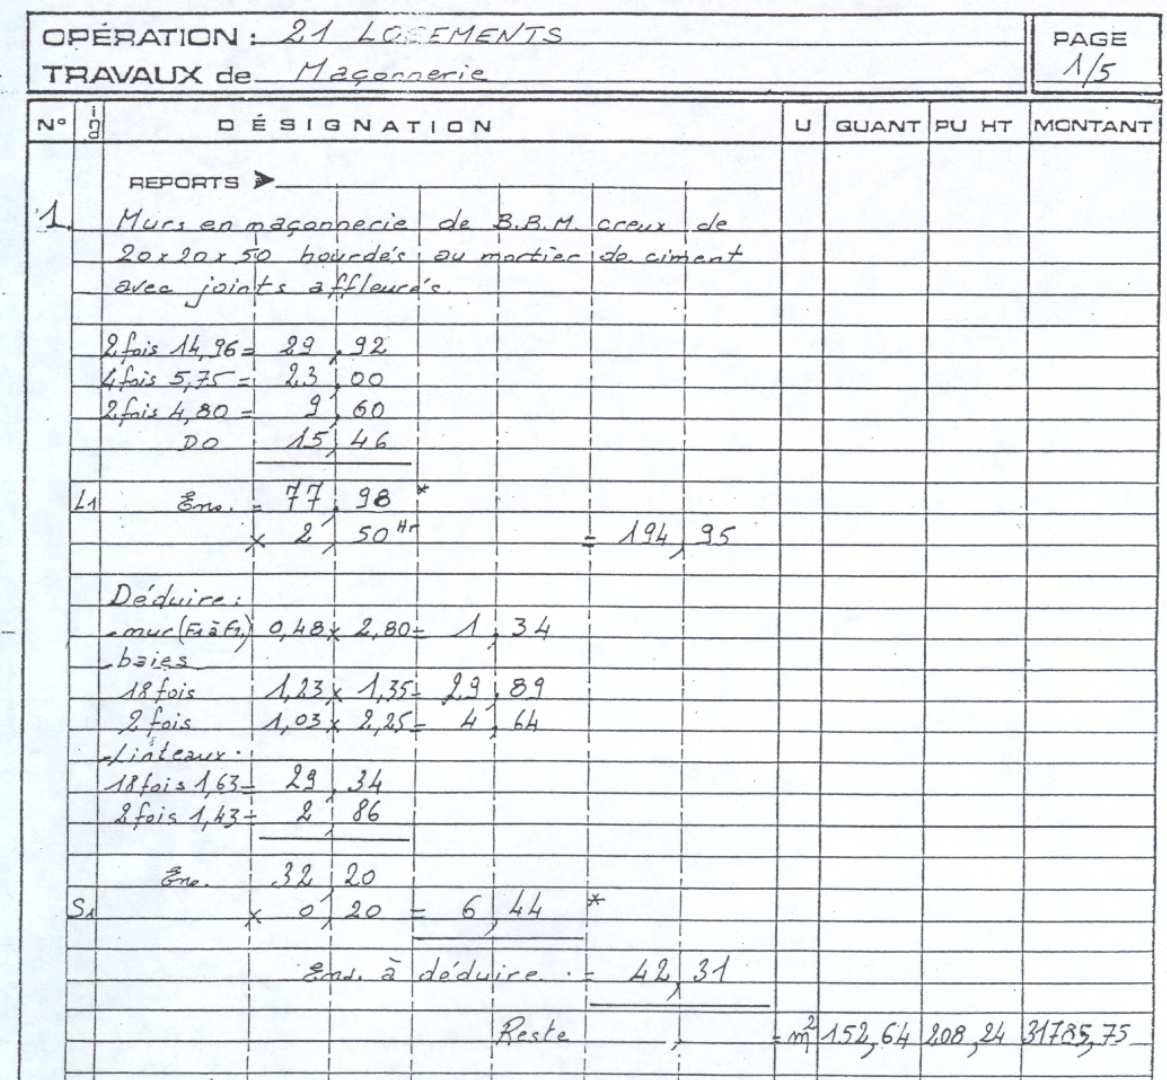 OPÉRATION : 21 LOGEMENTS
PAGE
1/5
TRAVAUX de Maçonnerie
N° ind DÉSIGNATION U QUANT PU HT MONTANT
REPORTS ➤
1. Murs en maçonnerie de B.B.M. creux de
20x20x50 hourdés au mortier de ciment
avec joints affleurés.
2 fois 14,96 = 29,92
4 fois 5,75 = 23,00
2 fois 4,80 = 9,60
DO 15,46
L1 Ens. = 77,98 *
x 2,50 Hr = 194,95
Déduire :
- mur (F1 à F1) 0,48 x 2,80 = 1,34
- baies
18 fois 1,23 x 1,35 = 29,89
2 fois 1,03 x 2,25 = 4,64
- Linteaux .
18 fois 1,63 = 29,34
2 fois 1,43 = 2,86
Ens. 32,20
S1 x 0,20 = 6,44 *
Ens. à déduire . = 42,31
Reste , = m² 152,64 208,24 31785,75